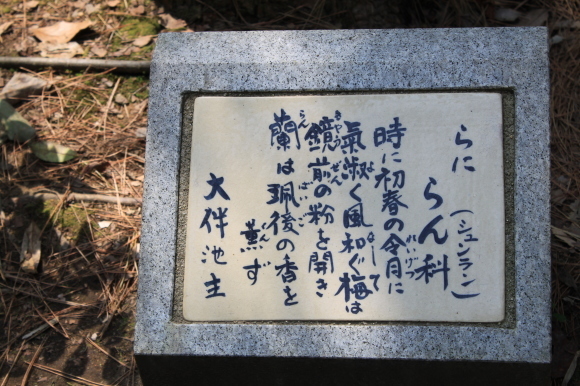 らに らん科
（シュンラン）
時に初春の令月に
氣淑く風和ぎ梅は
鏡前の粉を開き
蘭は珮後の香を
薫ず
大伴池主